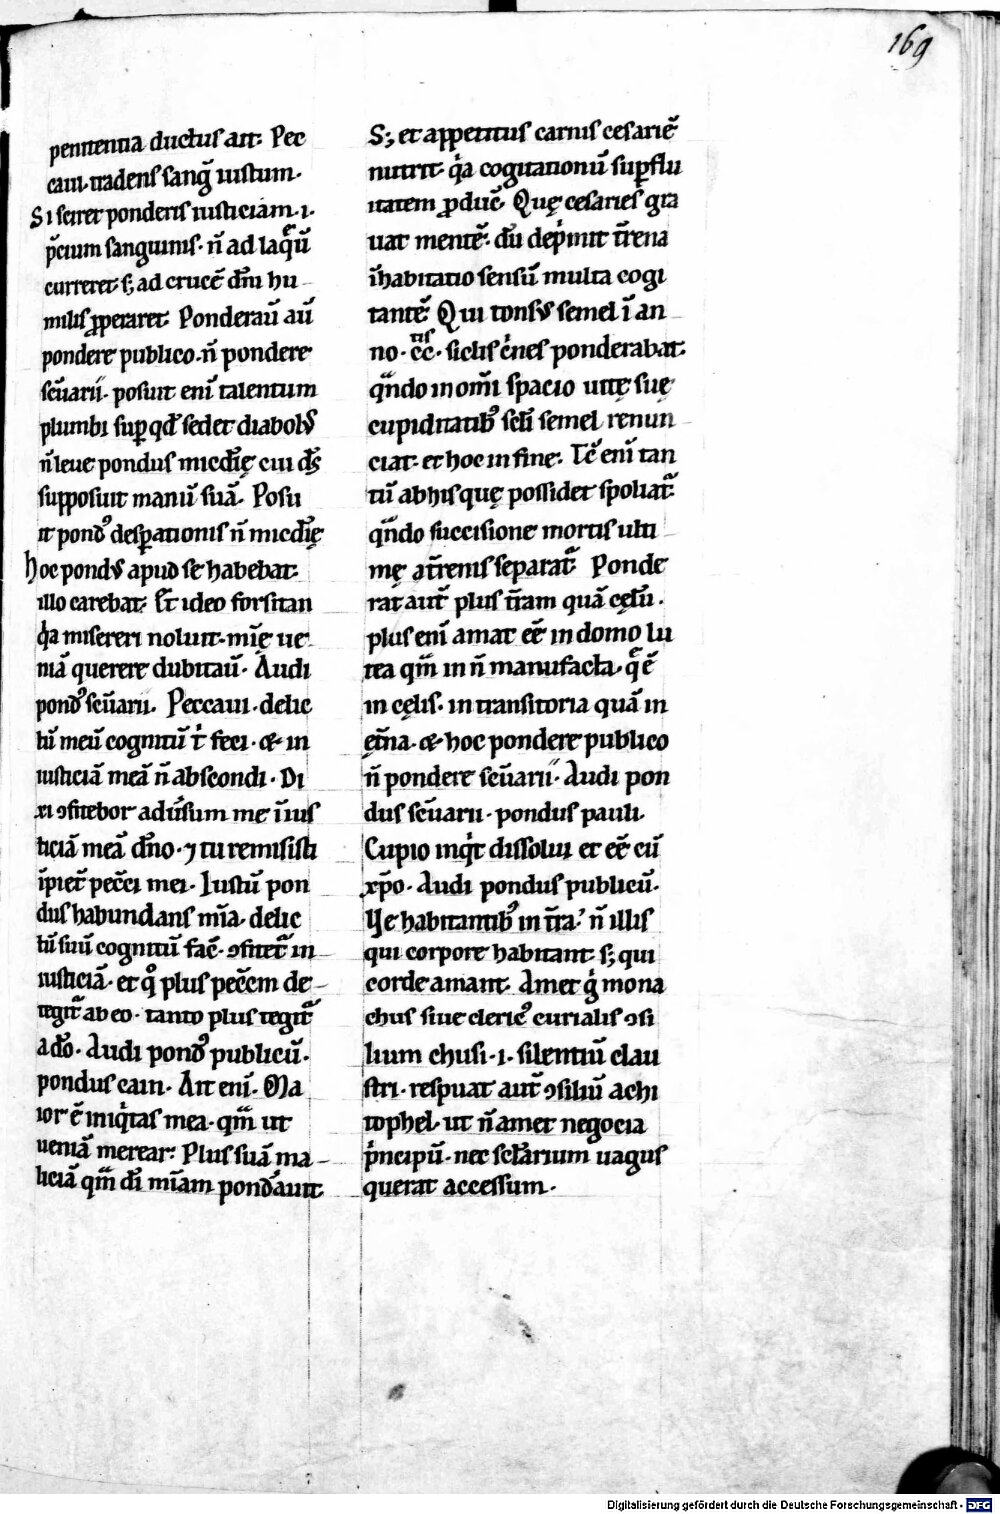 169
penitentia ductus ait· Pec
caui tradens sang̅ iustum·
Si sciret ponderis iusticiam·i·
p̅cium sanguinis· n̅ ad laq̅ū
curreret s; ad crucē dn̅i hu
milis ꝓperaret· Ponderau̅ au̅
pondere publico· n̅ pondere
scu̅arii· posuit eni̅ talentum
plumbi suꝑ qd̅ sedet diabolus
n̅ leue pondus mic̅die̅ cui ds̅
supposuit manu̅ sua̅· Posu
it pondꝰ desꝑationis n̅ mic̅die̅
hoc pondus apud se habebat·
illo carebat· Et ideo forsitan
qͥa misereri noluit· mi̅e ue
nia̅ querere dubitau̅· Audi
pondꝰ scu̅arii· Peccaui· delic
tu̅ meu̅ cognitu̅ tͥ feci· & in
iusticia̅ mea̅ n̅ abscondi· Di
xi ꝯfitebor adu̅sum me i̅ius
ticia̅ mea̅ dn̅o· ⁊ tu remisisti
i̅piet̅ pecc̅i mei· Iustu̅ pon
dus habundans mi̅a· delic
tu̅ suu̅ cognitu̅ fac̅· ꝯfitet᷑ in
iusticia̅· et qͦ plus pecc̅m de
tegit᷑ ab eo· tanto plus tegit᷑
a do̅· Audi pondꝰ publicu̅·
pondus cain· Ait eni̅· Ma
ior e̅ iniqͥtas mea· qm̅ ut
uenia̅ merear· Plus sua̅ ma
licia̅ qm̅ di̅ mi̅am pond̅auit
S; et appetitus carnis cesarie̅
nutrit· qͥa cogitationu̅ suꝑflu
itatem ꝓduc̅· Quę cesaries gra
uat mente̅· du̅ dep̅mit t̅rena
i̅habitatio sensu̅ multa cogi
tante̅· Qui tonsus semel i̅ an
no· cc̅tis· siclis cͥnes ponderabat·
qn̅do in omi̅ spacio uitę suę
cupiditatibꝰ scl̅i semel renun
ciat· et hoc in fine· Tc̅ eni̅ tan
tu̅ ab his quę possidet spoliat᷑·
qn̅do succisione mortis ulti
mę a t̅renis separat᷑· Ponde
rat aut̅ plus t̅ram qua̅ cęlu̅·
plus eni̅ amat ee̅ in domo lu
tea qm̅ in n̅ manufacta· q̅ e̅
in cęlis· in transitoria qua̅ in
ęt̅na· & hoc pondere publico
n̅ pondere scu̅arii· Audi pon
dus scu̅arii· pondus pauli·
Cupio inqͥt dissolui et ee̅ cu̅
xp̅o· Audi pondus publicu̅·
Ue habitantibꝰ in t̅ra· n̅ illis
qui corpore habitant s; qui
corde amant· Amet gͥ mona
chus siue clericꝰ curialis ꝯsi
lium chusi· i· silentiu̅ clau
stri· respuat aut̅ ꝯsiliu̅ achi
tophel· ut n̅ amet negocia
pͥncipu̅· nec scl̅arium uagus
querat accessum·
Digitalisierung gefördert durch die Deutsche Forschungsgemeinschaft - DFG